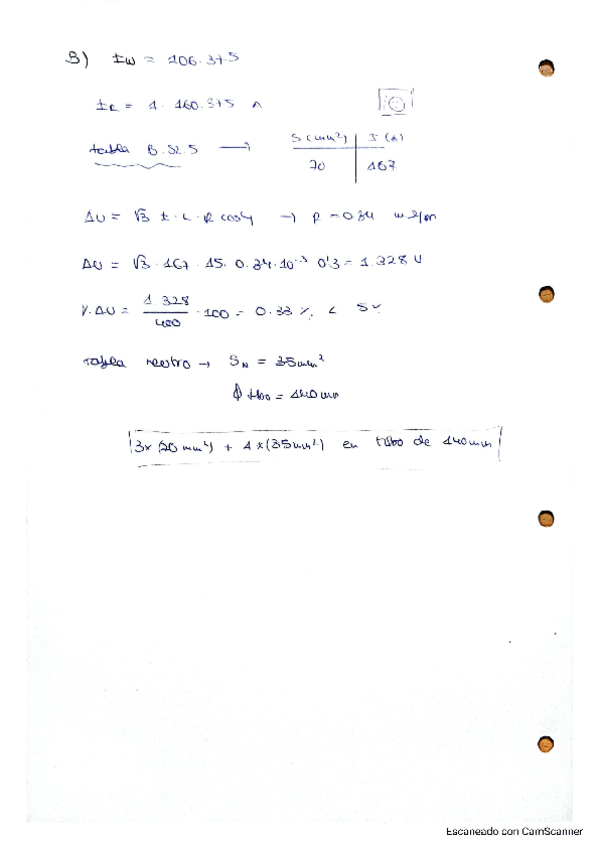 3) Iw = 106.375
IR = 1.160.375 A
tabla B.52.5 → S(mm²) I(A)
70 167
ΔU = √3 I · L · R cosφ → R = 0.34 Ω/km
ΔU = √3 · 167 · 15 · 0.34 · 10⁻³ 0'3 = 1.328 V
% ΔU = 1.328 / 400 · 100 = 0.33 % < 5%
Tabla neutro → SN = 35mm²
ϕ tubo = 140mm
3x(70mm²) + 1x(35mm²) en tubo de 140mm
Escaneado con CamScanner